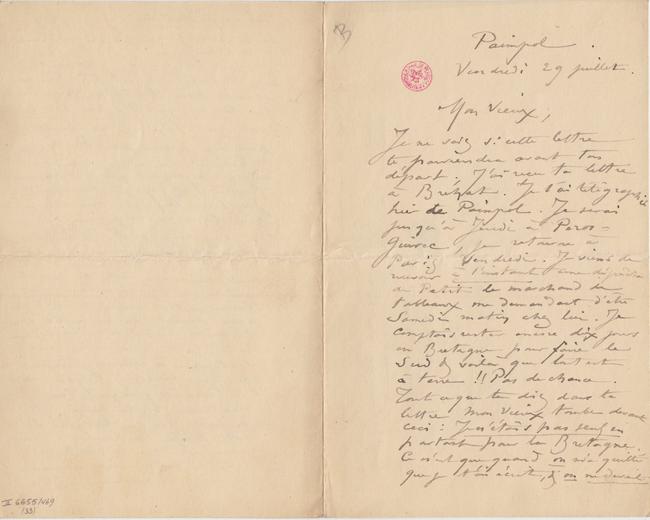 Paimpol.
Vendredi 29 juillet.
Mon Vieux,
Je ne sais si cette lettre
te parviendra avant ton
départ. J'ai reçu ta lettre
à Bréhat. Je t'ai télégraphié
hier de Paimpol. Je serai
jusqu'à Jeudi à Peros-
Guirec, je retourne à
Paris Vendredi. Je viens de
recevoir à l'instant une dépêche
de Petit le marchand de
tableaux me demandant d'être
Samedi matin chez lui. Je
comptais rester encore dix jours
en Bretagne pour faire le
Sud & voilà que tout est
à terre !! Pas de chance.
Tout ce que tu dis dans ta
lettre mon vieux tombe devant
ceci : Je n'étais pas seul en
partant pour la Bretagne.
Ce n'est que quand on m'a quitté
que je t'ai écrit, & on me devait
II 6655/469
(33)